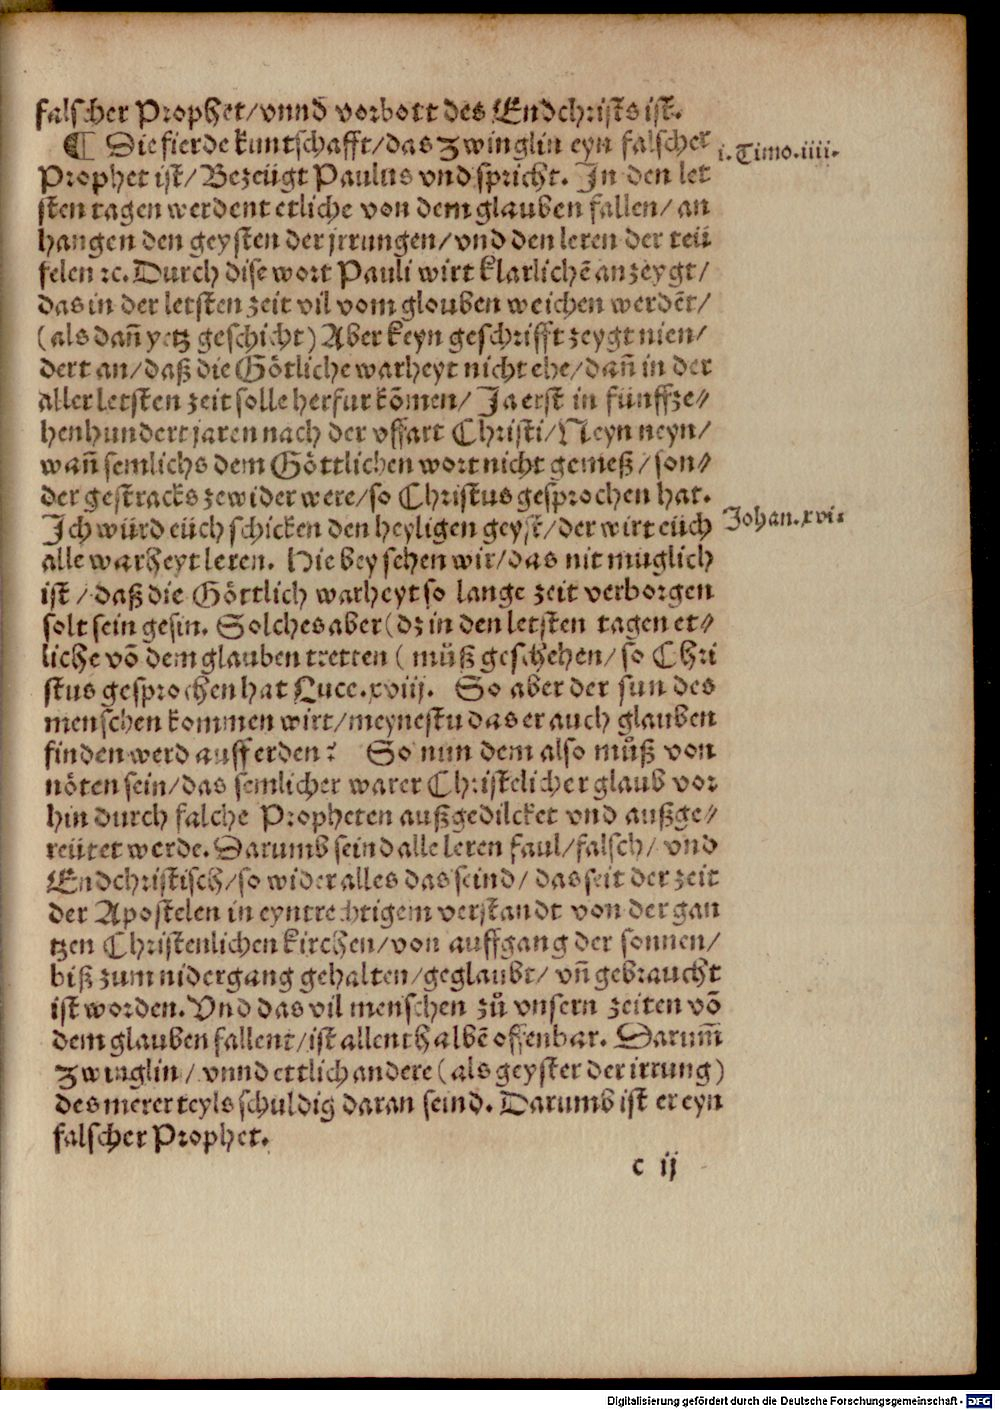 falscher Prophet/vnnd vorbott des Endchrists ist.
¶ Die fierde kuntschafft/das Zwinglin eyn falscher
i.Timo.iiii.
Prophet ist/ Bezeügt Paulus vnd spricht. In den let
sten tagen werdent etliche von dem glauben fallen/ an
hangen den geysten der jrrungen/vnd den leren der teü
felen ꝛc. Durch dise wort Pauli wirt klarlichē anzeygt/
das in der letsten zeit vil vom glouben weichen werdēt/
(als dañ yetz geschicht) Aber keyn geschrifft zeygt nien/
dert an/daß die Götliche warheyt nicht ehe/dañ in der
aller letsten zeit solle herfur kōmen/ Ja erst in fünffze⸗
henhundert jaren nach der vffart Christi/Neyn neyn/
wañ semlichs dem Göttlichen wort nicht gemeß/son⸗
der gestracks zewider were/so Christus gesprochen hat.
Ich würd eüch schicken den heyligen geyst/der wirt eüch
Johan.xvi.
alle warheyt leren. Hie bey sehen wir/das nit müglich
ist/daß die Göttlich warheyt so lange zeit verborgen
solt sein gesin. Solches aber(dz in den letsten tagen et⸗
liche vō dem glauben tretten ( můß geschehen/so Chri
stus gesprochen hat Luce.xviij. So aber der sun des
menschen kommen wirt/meynestu das er auch glauben
finden werd auff erden? So nun dem also můß von
nöten sein/das semlicher warer Christelicher glaub vor
hin durch falche Propheten außgedilcket vnd außge⸗
reütet werde. Darumb seind alle leren faul/falsch/ vnd
Endchristisch/so wider alles das seind/ das seit der zeit
der Apostelen in eyntrechtigem verstandt von der gan
tzen Christenlichen kirchen/von auffgang der sonnen/
biß zum nidergang gehalten/geglaubt/ vñ gebraucht
ist worden. Vnd das vil menschen zů vnsern zeiten vō
dem glauben fallent/ist allenthalbē offenbar. Darum̄
Zwinglin/ vnnd ettlich andere (als geyster der irrung)
des merer teyls schuldig daran seind. Darumb ist er eyn
falscher Prophet.
c ij
Digitalisierung gefördert durch die Deutsche Forschungsgemeinschaft - DFG